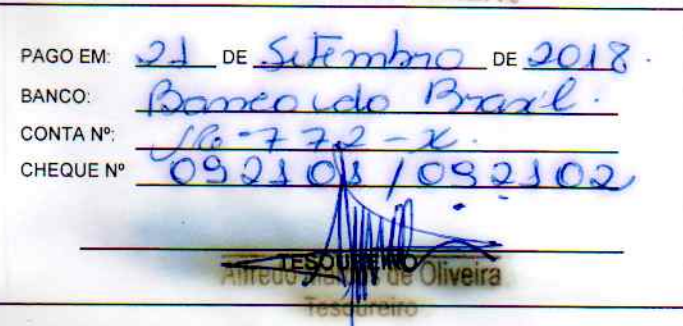 PAGO EM: 21 DE Setembro DE 2018.
BANCO: Banco do Brasil.
CONTA Nº: 16-772-X.
CHEQUE Nº 092101 / 092102
TESOUREIRO
Alfredo de Oliveira
Tesoureiro